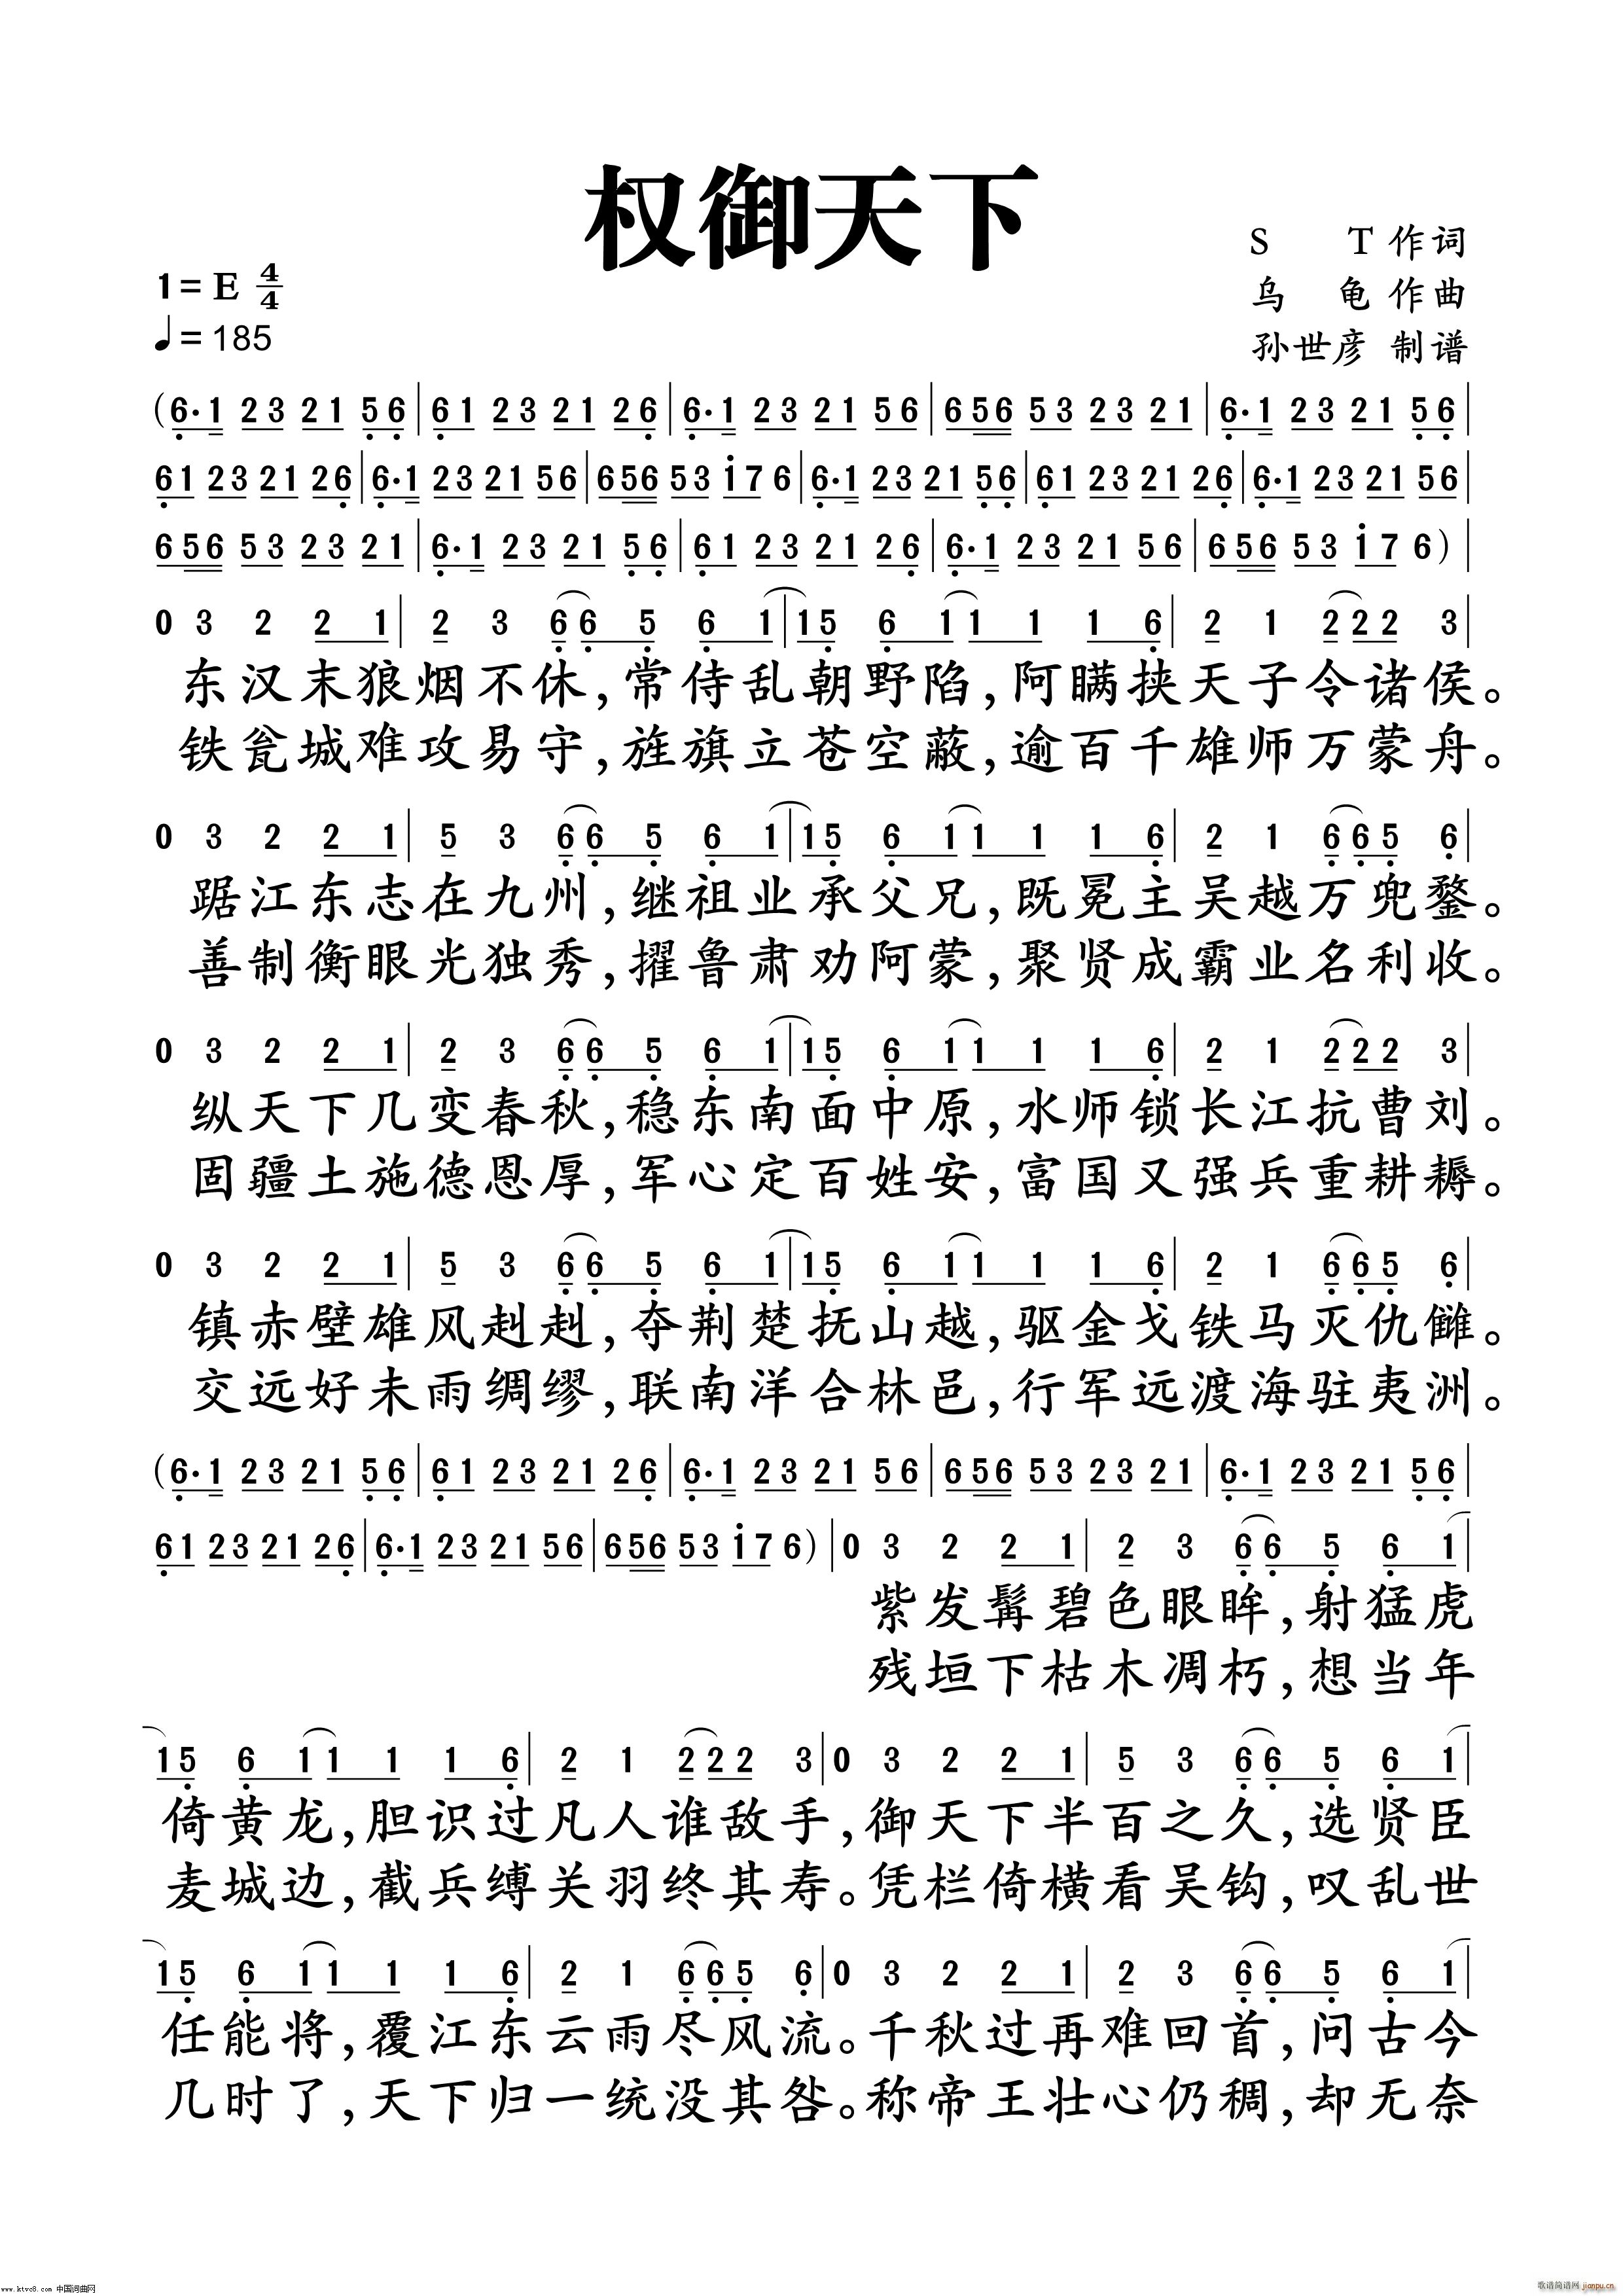 权御天下
S T 作词
1=E 4/4
乌 龟 作曲
♩=185
孙世彦 制谱
(6·1 23 21 56|61 23 21 26|6·1 23 21 56|656 53 23 21|6·1 23 21 56|
61 23 21 26|6·1 23 21 56|656 53 17 6|6·1 23 21 56|61 23 21 26|6·1 23 21 56|
656 53 23 21|6·1 23 21 56|61 23 21 26|6·1 23 21 56|656 53 17 6)|
0 3 2 2 1|2 3 66 5 6 1|15 6 11 1 1 6|2 1 222 3|
东汉末狼烟不休,常侍乱朝野陷,阿瞒挟天子令诸侯。
铁瓮城难攻易守,旌旗立苍空蔽,逾百千雄师万蒙舟。
0 3 2 2 1|5 3 66 5 6 1|15 6 11 1 1 6|2 1 665 6|
踞江东志在九州,继祖业承父兄,既冕主吴越万兜鍪。
善制衡眼光独秀,擢鲁肃劝阿蒙,聚贤成霸业名利收。
0 3 2 2 1|2 3 66 5 6 1|15 6 11 1 1 6|2 1 222 3|
纵天下几变春秋,稳东南面中原,水师锁长江抗曹刘。
固疆土施德恩厚,军心定百姓安,富国又强兵重耕耨。
0 3 2 2 1|5 3 66 5 6 1|15 6 11 1 1 6|2 1 665 6|
镇赤壁雄风赳赳,夺荆楚抚山越,驱金戈铁马灭仇雠。
交远好未雨绸缪,联南洋合林邑,行军远渡海驻夷洲。
(6·1 23 21 56|61 23 21 26|6·1 23 21 56|656 53 23 21|6·1 23 21 56|
61 23 21 26|6·1 23 21 56|656 53 17 6)|0 3 2 2 1|2 3 66 5 6 1|
紫发髯碧色眼眸,射猛虎
残垣下枯木凋朽,想当年
15 6 11 1 1 6|2 1 222 3|0 3 2 2 1|5 3 66 5 6 1|
倚黄龙,胆识过凡人谁敌手,御天下半百之久,选贤臣
麦城边,截兵缚关羽终其寿。凭栏倚横看吴钩,叹乱世
15 6 11 1 1 6|2 1 665 6|0 3 2 2 1|2 3 66 5 6 1|
任能将,覆江东云雨尽风流。千秋过再难回首,问古今
几时了,天下归一统没其咎。称帝王壮心仍稠,却无奈
www.ktvc8.com 中国词曲网
歌谱简谱网 jianpu.cn